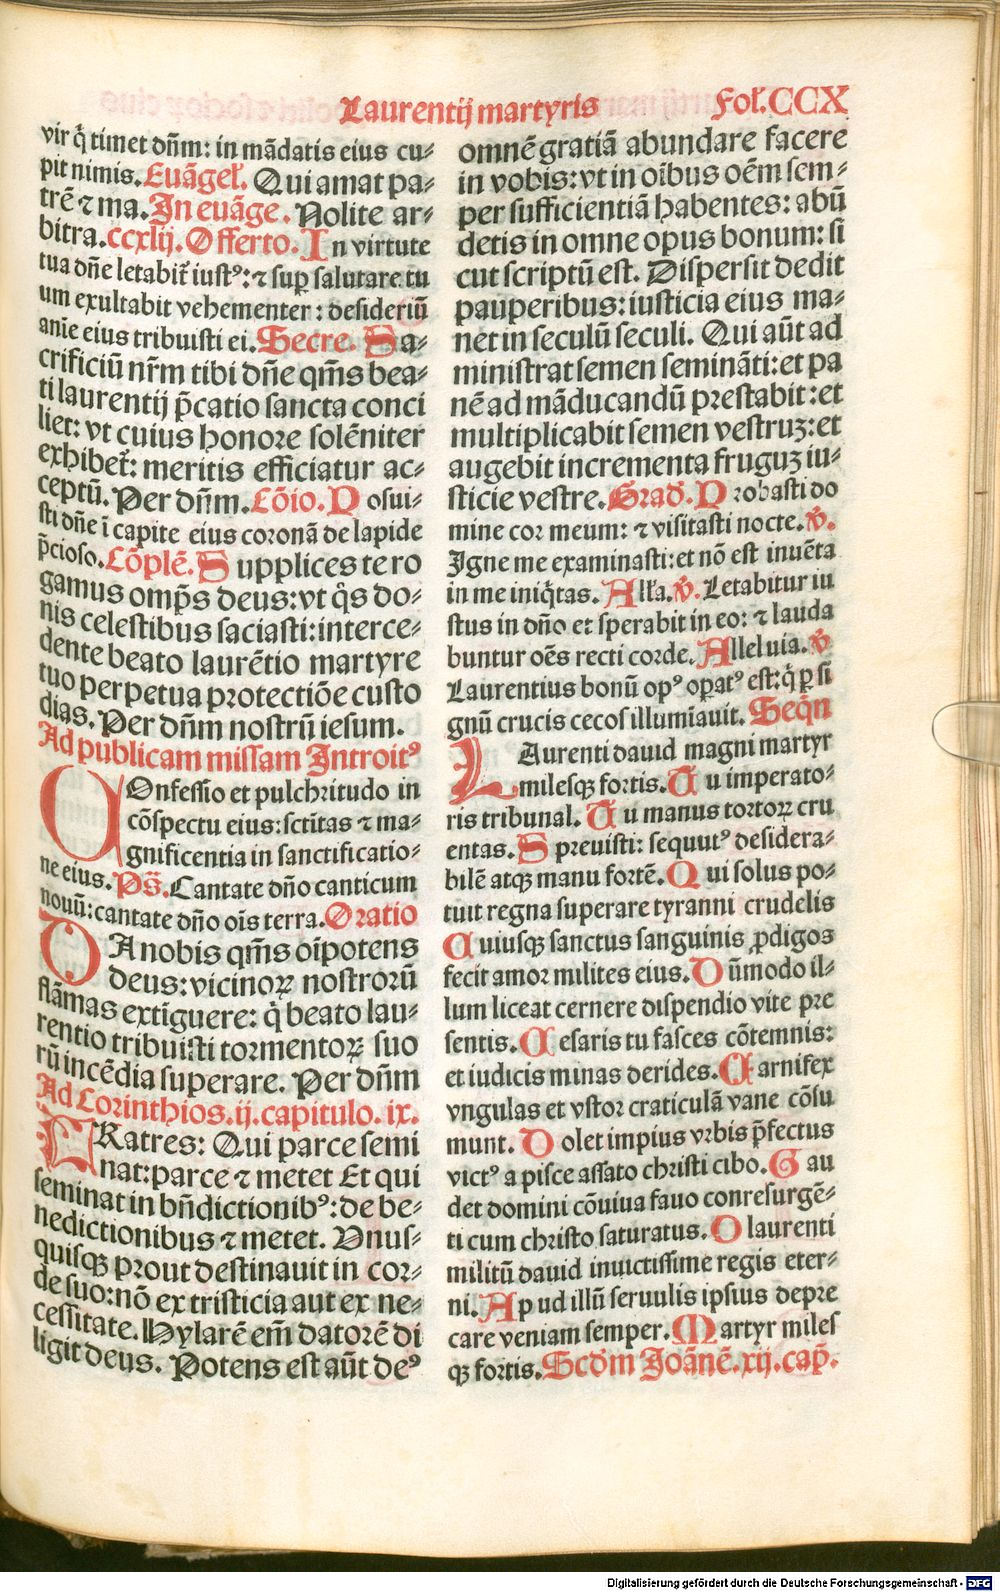 Laurentij martyris
Fol̃.CCX
vir q̃ timet dñm: in mãdatis eius cu⸗
pit nimis. Euãgel̃. Qui amat pa⸗
trẽ ⁊ ma. In euãge. Nolite ar⸗
bitra. ccxlij. Offerto. In virtute
tua dñe letabit̃ iustꝰ: ⁊ suꝑ salutare tu
um exultabit vehementer: desideriũ
anĩe eius tribuisti ei. Secre. Sa⸗
crificiũ nr̃m tibi dñe qm̃s bea⸗
ti laurentij p̃catio sancta conci
liet: vt cuius honore solẽniter
exhibet̃: meritis efficiatur ac⸗
ceptũ. Per dñm. Cõio. Posui⸗
sti dñe ĩ capite eius coronã de lapide
p̃cioso. Cõplẽ. Supplices te ro
gamus omp̃s deus: vt q̃s do⸗
nis celestibus saciasti: interce⸗
dente beato laurẽtio martyre
tuo perpetua protectiõe custo
dias. Per dñm nostrũ iesum.
Ad publicam missam Introitꝰ
COnfessio et pulchritudo in
cõspectu eius: sctĩtas ⁊ ma⸗
gnificentia in sanctificatio⸗
ne eius. Ps̃. Cantate dño canticum
nouũ: cantate dño oĩs terra. Oratio
DA nobis qm̃s oĩpotens
deus: vicinoꝝ nostrorũ
flãmas extĩguere: q̃ beato lau⸗
rentio tribuisti tormentoꝝ suo
rũ incẽdia superare. Per dñm
Ad Corinthios.ij. capitulo. ix.
FRatres: Qui parce semi
nat: parce ⁊ metet Et qui
seminat in bñdictionibꝰ: de be⸗
nedictionibus ⁊ metet. Vnus⸗
quisqꝫ prout destinauit in cor⸗
de suo: nõ ex tristicia aut ex ne⸗
cessitate. Hylarẽ em̃ datorẽ di
ligit deus. Potens est aũt deꝰ
omnẽ gratiã abundare facere
in vobis: vt in oĩbus oẽm sem⸗
per sufficientiã habentes: abũ
detis in omne opus bonum: si
cut scriptũ est. Dispersit dedit
pauperibus: iusticia eius ma⸗
net in seculũ seculi. Qui aũt ad
ministrat semen seminãti: et pa
nẽ ad mãducandũ prestabit: et
multiplicabit semen vestruꝫ: et
augebit incrementa fruguꝫ iu⸗
sticie vestre. Grad̃. Probasti do
mine cor meum: ⁊ visitasti nocte. v̾.
Igne me examinasti: et nõ est inuẽta
in me iniq̃tas. All̃a. v̾. Letabitur iu
stus in dño et sperabit in eo: ⁊ lauda
buntur oẽs recti corde. Alleluia. v̾
Laurentius bonũ opꝰ oꝑatꝰ est: q̃ ꝑ si
gnũ crucis cecos illumĩauit. Seq̃n
LAurenti dauid magni martyr
milesqꝫ fortis. Tu imperato⸗
ris tribunal. Tu manus tortoꝝ cru
entas. Spreuisti: sequutꝰ desidera⸗
bilẽ atqꝫ manu fortẽ. Qui solus po⸗
tuit regna superare tyranni crudelis
Cuiusqꝫ sanctus sanguinis ꝓdigos
fecit amor milites eius. Dũmodo il⸗
lum liceat cernere dispendio vite pre
sentis. Cesaris tu fasces cõtemnis:
et iudicis minas derides. Carnifex
vngulas et vstor craticulã vane cõsu
munt. Dolet impius vrbis p̃fectus
victꝰ a pisce assato christi cibo. Gau
det domini cõuiua fauo conresurgẽ⸗
ti cum christo saturatus. O laurenti
militũ dauid inuictissime regis eter⸗
ni. Apud illũ seruulis ipsius depre
care veniam semper. Martyr miles
qꝫ fortis. Scd̃m Joãnẽ. xij. cap̃.
Digitalisierung gefördert durch die Deutsche Forschungsgemeinschaft - DFG